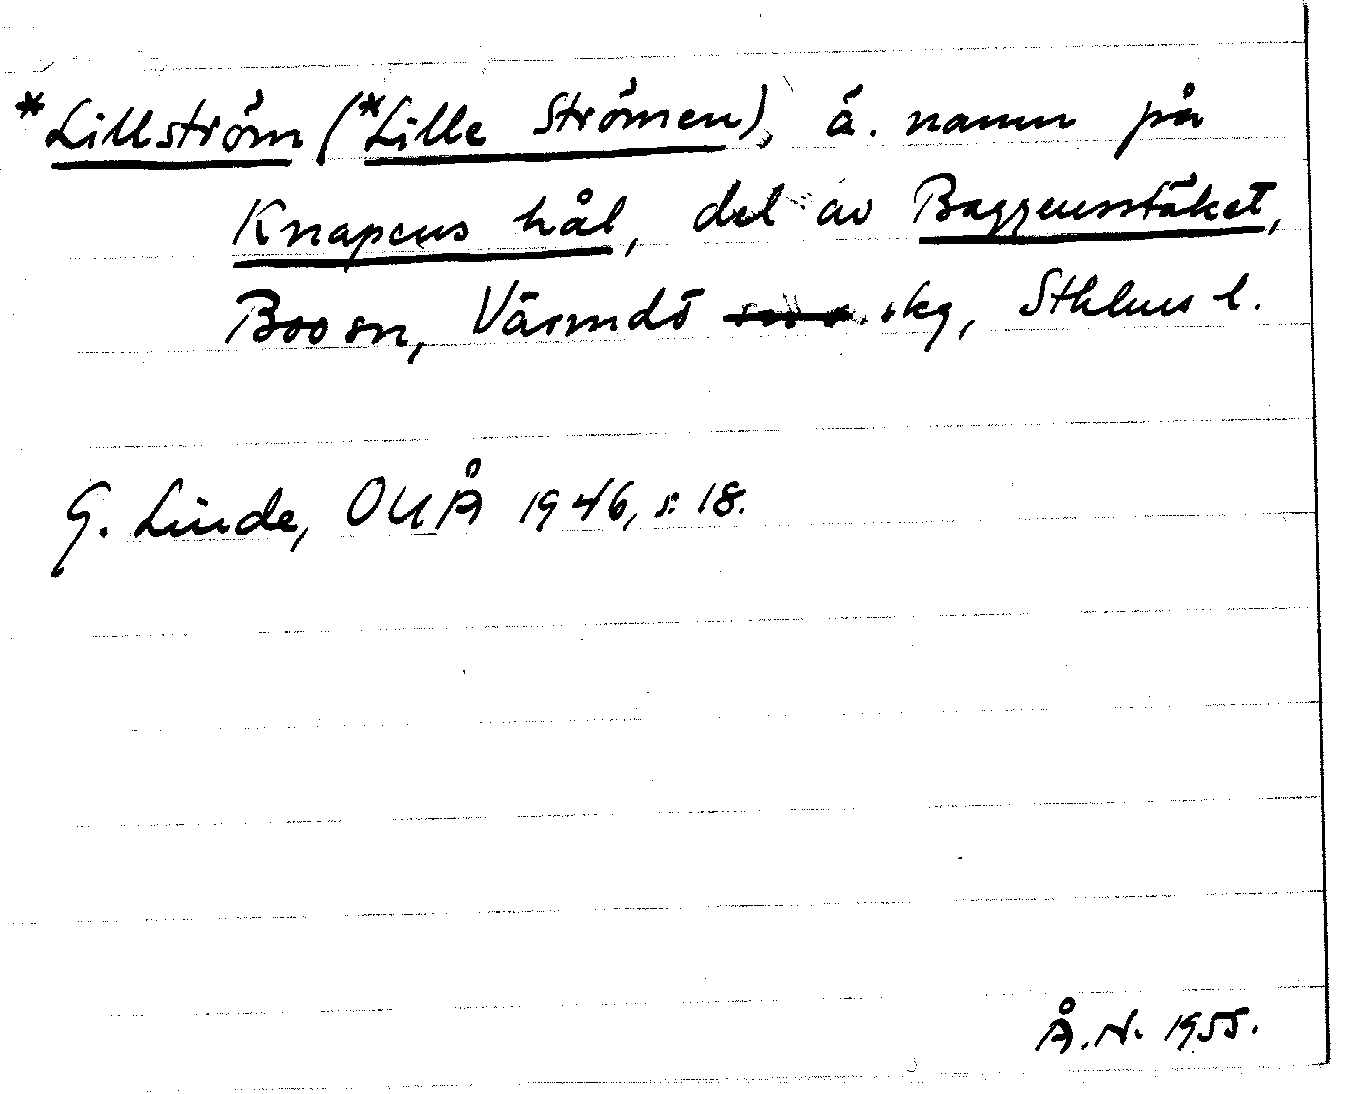 *Lillström (*Lille Strömen), ä. namn på
Knapens hål, del av Baggensstäket,
Boo sn, Värmdö skg, Sthlms l.
G. Linde, OUÅ 1946, s. 18.
Å.N. 1955.